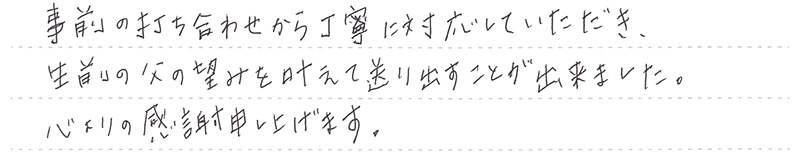 事前の打ち合わせから丁寧に対応していただき、
生前の父の望みを叶えて送り出すことが出来ました。
心よりの感謝申し上げます。